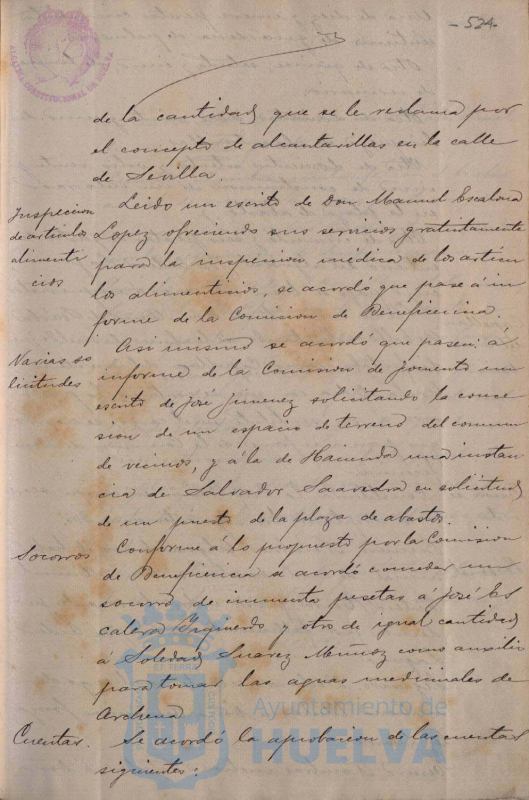 -524-
ALCALDIA CONSTITUCIONAL DE HUELVA
de la cantidad que se le reclama por
el concepto de alcantarillas en la calle
de Sevilla.
Inspeccion
de articulos
alimenti
cios
Leido un escrito de Don Manuel Escalona
Lopez ofreciendo sus servicios gratuitamente
para la inspeccion médica de los articu
los alimenticios, se acordó que pase á in
forme de la Comision de Beneficencia.
Varias so
licitudes
Asi mismo se acordó que pasen á
informe de la Comision de fomento un
escrito de José Jimenez solicitando la conce
sion de un espacio de terreno del comun
de vecinos, y á la de Hacienda una instan
cia de Salvador Saavedra en solicitud
de un puesto de la plaza de abastos.
Socorros
Conforme á lo propuesto por la Comision
de Beneficencia se acordó conceder un
socorro de cincuenta pesetas á José Es
calera Izquierdo y otro de igual cantidad
á Soledad Suarez Muñoz como auxilio
para tomar las aguas medicinales de
Archena
Cuentas.
Se acordó la aprobacion de las cuentas
siguientes:
Ayuntamiento de
HUELVA